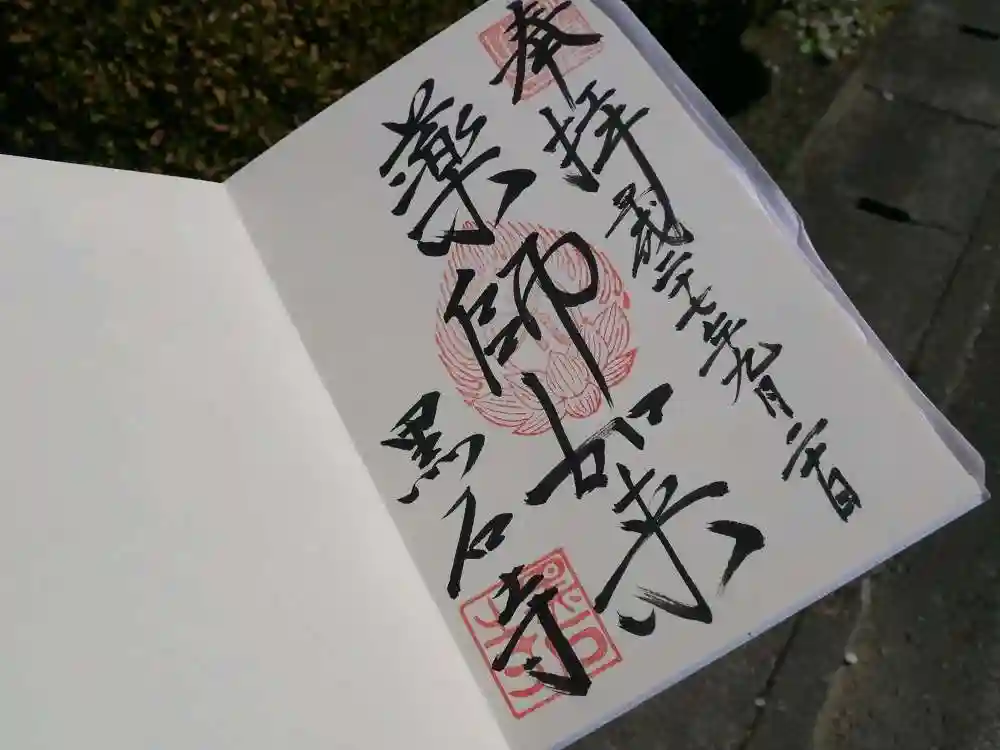 奉拝
平成二十七年九月二十日
薬師如来
黒石寺